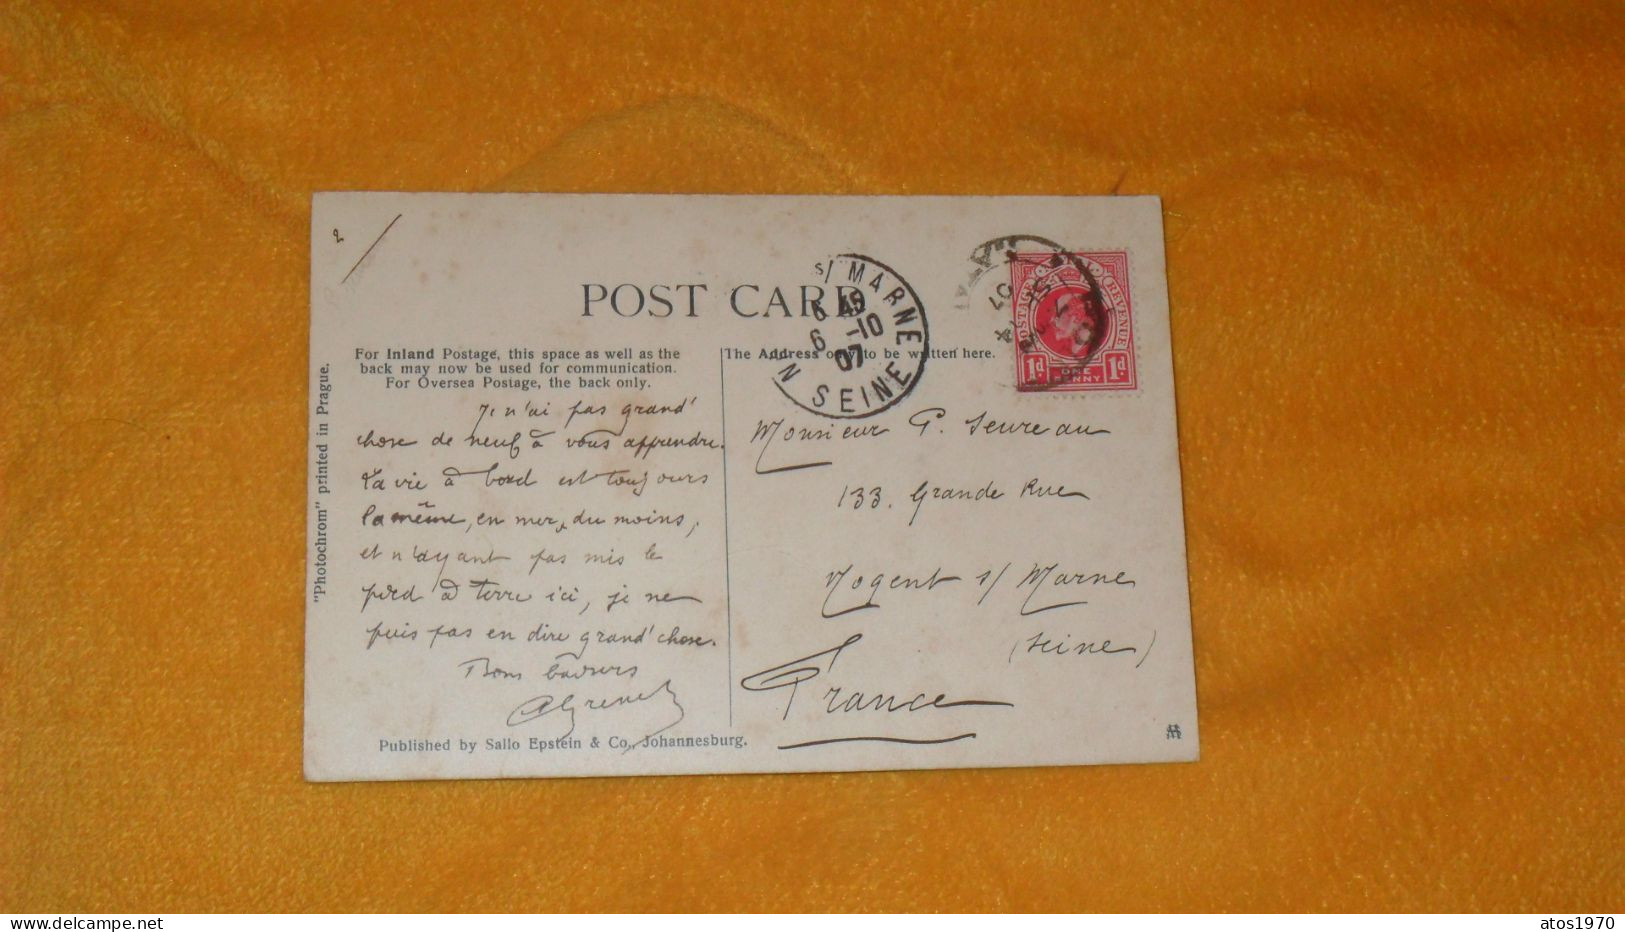 2
POST CARD
For Inland Postage, this space as well as the
back may now be used for communication.
For Oversea Postage, the back only.
The Address only to be written here.
"Photochrom" printed in Prague.
Je n'ai pas grand'
chose de neuf à vous apprendre.
La vie à bord est toujours
la même, en mer, du moins,
et n'ayant pas mis le
pied à terre ici, je ne
puis pas en dire grand'chose.
Bons baisers
Published by Sallo Epstein & Co., Johannesburg.
S/ MARNE
6 45
6 -10
07
SEINE
POSTAGE REVENUE
1d 1d
ONE
PENNY
Monsieur G. Seureau
133. Grande Rue
Nogent s/ Marne
(Seine)
France
atos1970